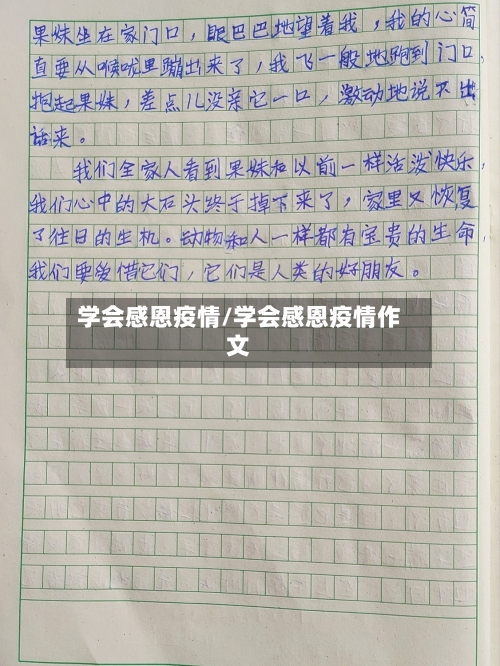 果妹坐在家门口，眼巴巴地望着我，我的心简
直要从喉咙里蹦出来了，我飞一般地跑到门口，
抱起果妹，差点儿没亲它一口，激动地说不出
话来。
我们全家人看到果妹和以前一样活泼快乐，
我们心中的大石头终于掉下来了，家里又恢复
了往日的生机。动物和人一样都有宝贵的生命，
我们要爱惜它们，它们是人类的好朋友。
学会感恩疫情/学会感恩疫情作
文